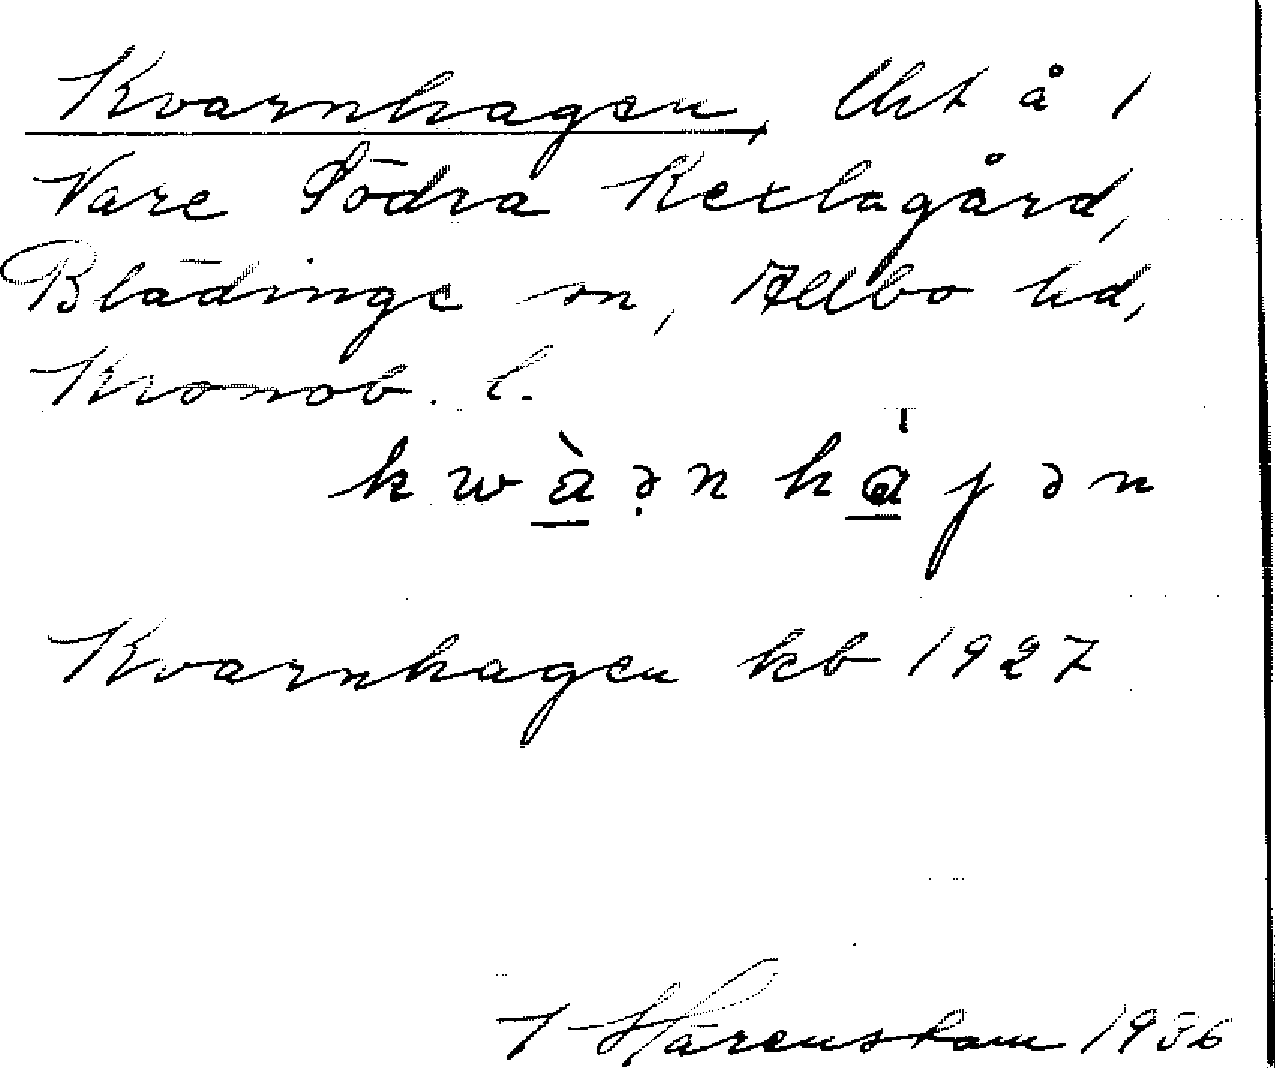 Kvarnhagen, Uht å 1
Vare Södra Kexlagård,
Blädinge sn, Allbo hd,
Kronob. l.
kwàənhajən
Kvarnhagen kb 1927
Härenstam 1936